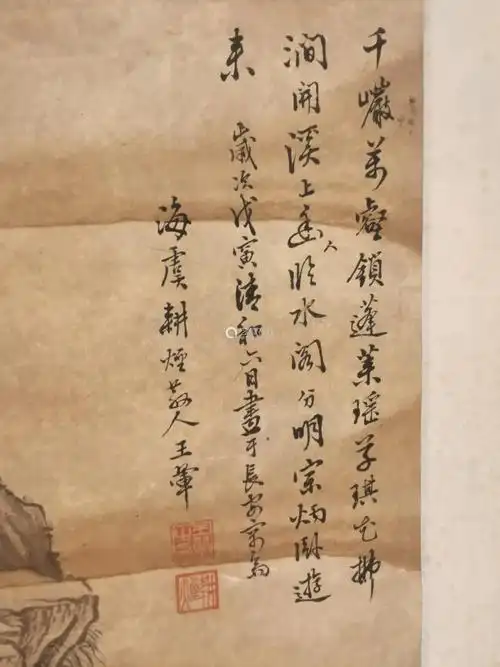 千巖萬壑鎖蓬萊瑤草琪花拂
澗開溪上幽人臨水閣分明宗炳臥遊
來
歲次戊寅清和六日畫于長安客舍
海虞耕煙散人王翬